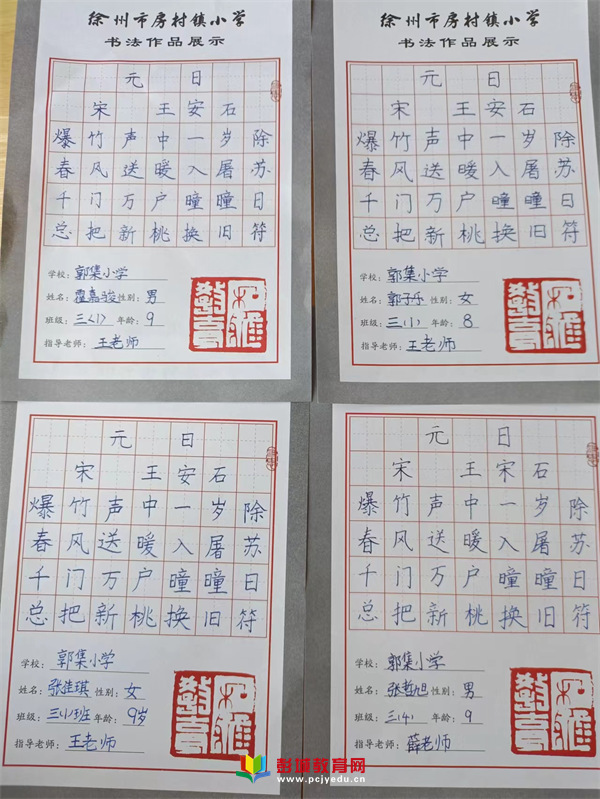 徐州市房村镇小学
书法作品展示
元日
宋 王安石
爆竹声中一岁除
春风送暖入屠苏
千门万户曈曈日
总把新桃换旧符
学校:郭集小学
姓名:嘉骏 性别:男
班级:三<1> 年龄:9
指导老师:王老师
徐州市房村镇小学
书法作品展示
元日
宋 王安石
爆竹声中一岁除
春风送暖入屠苏
千门万户曈曈日
总把新桃换旧符
学校:郭集小学
姓名:郭子 性别:女
班级:三(1) 年龄:8
指导老师:王老师
元日
宋 王安石
爆竹声中一岁除
春风送暖入屠苏
千门万户曈曈日
总把新桃换旧符
学校:郭集小学
姓名:张佳琪 性别:女
班级:三(1)班 年龄:9岁
指导老师:王老师
元日
宋 王宋石
爆竹声中一岁除
春风送暖入屠苏
千门万户曈曈日
总把新桃换旧符
学校:郭集小学
姓名:张哲旭 性别:男
班级:三(4) 年龄:9
指导老师:薛老师
彭城教育网
www.pcjyedu.cn